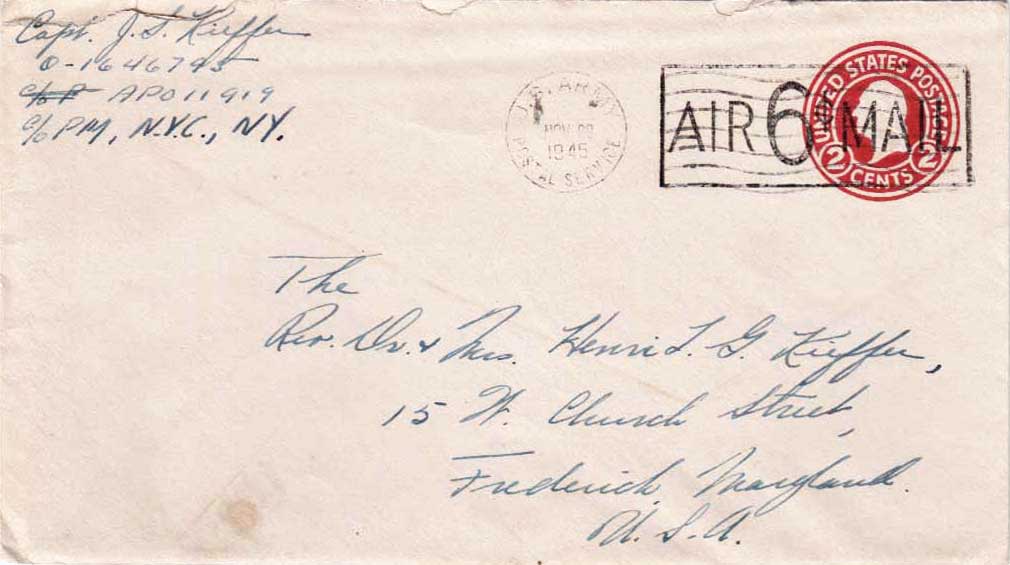 Capt. J. S. Kieffer
O-1646795
c/o P APO 11919
c/o PM, N.Y.C., NY.
U.S. ARMY
NOV
1945
POSTAL SERVICE
AIR 6¢ MAIL
UNITED STATES POSTAGE
2 CENTS 2
The
Rev. Dr. & Mrs. Henri L. G. Kieffer,
15 W. Church Street,
Frederick, Maryland.
U. S. A.